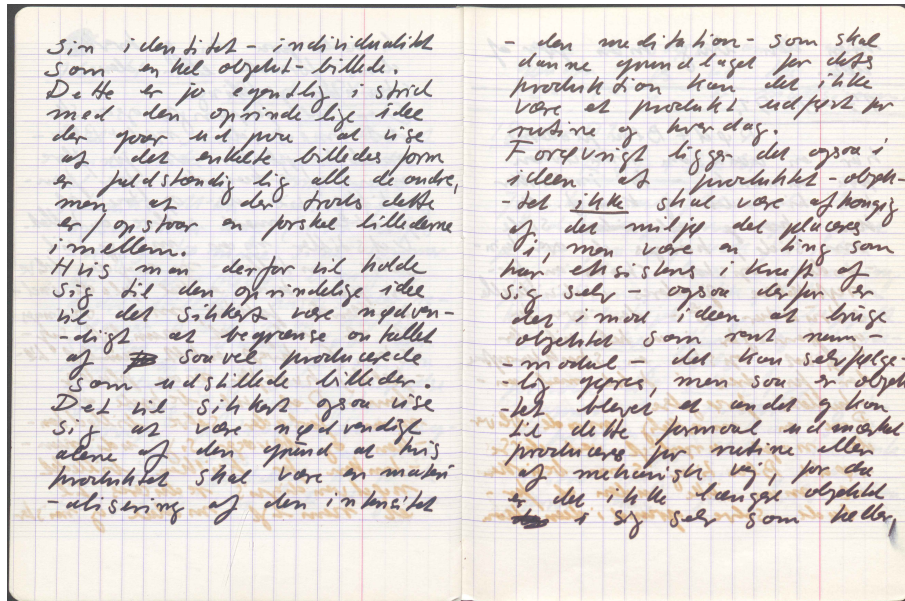 sin identitet - individualitet
som enkel objekt-billede.
Dette er jo egentlig i strid
med den oprindelige idee
der gaar ud paa at vise
at det enkelte billedes form
er fuldstændig lig alle de andre,
men at der trods dette
er/opstaar en forskel billederne
imellem.
Hvis man derfor vil holde
sig til den oprindelige idee
vil det sikkert være nødven-
-digt at begrænse antallet
af saavel producerede
som udstillede billeder.
Det vil sikkert ogsaa vise
sig at være nødvendigt
alene af den grund at hvis
produktet skal være en materi
-alisering af den intensitet
- den meditation - som skal
danne grundlaget for dets
produktion kan det ikke
være et produkt udført pr
rutine og hverdag.
Forøvrigt ligger det ogsaa i
ideen at - produktet - objek-
-tet ikke skal være afhængig
af det miljø det placeres
i, men være en ting som
har eksistens i kraft af
sig selv - ogsaa derfor er
det imod ideen at bruge
objektet som rent rum-
-modul - det kan selvfølge-
-lig gøres, men saa er objek
-tet blevet et andet og kan
til dette formaal udmærket
produceres pr rutine eller
af mekanisk vej, for da
er det ikke længere objektet
i sig selv som tæller,